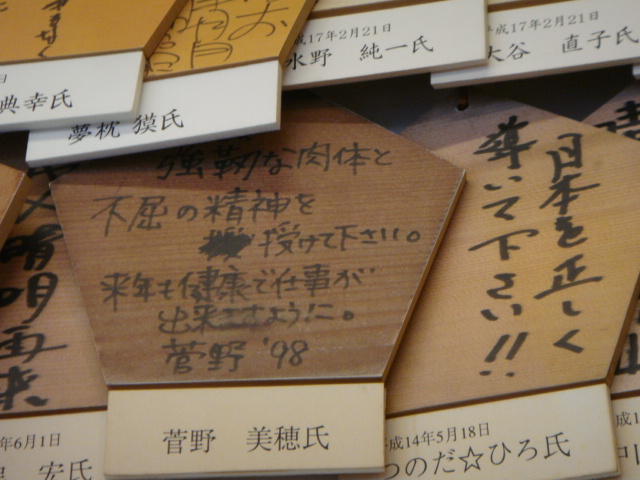 17年2月21日
水野 純一氏
平成17年2月21日
大谷 直子氏
典幸氏
夢枕 獏氏
強靭な肉体と
不屈の精神を
授けて下さい。
来年も健康で仕事が
出来ますように。
菅野 '98
菅野 美穂氏
日本を正しく
導いて下さい!!
平成14年5月18日
つのだ☆ひろ氏
晴明
年6月1日
安氏